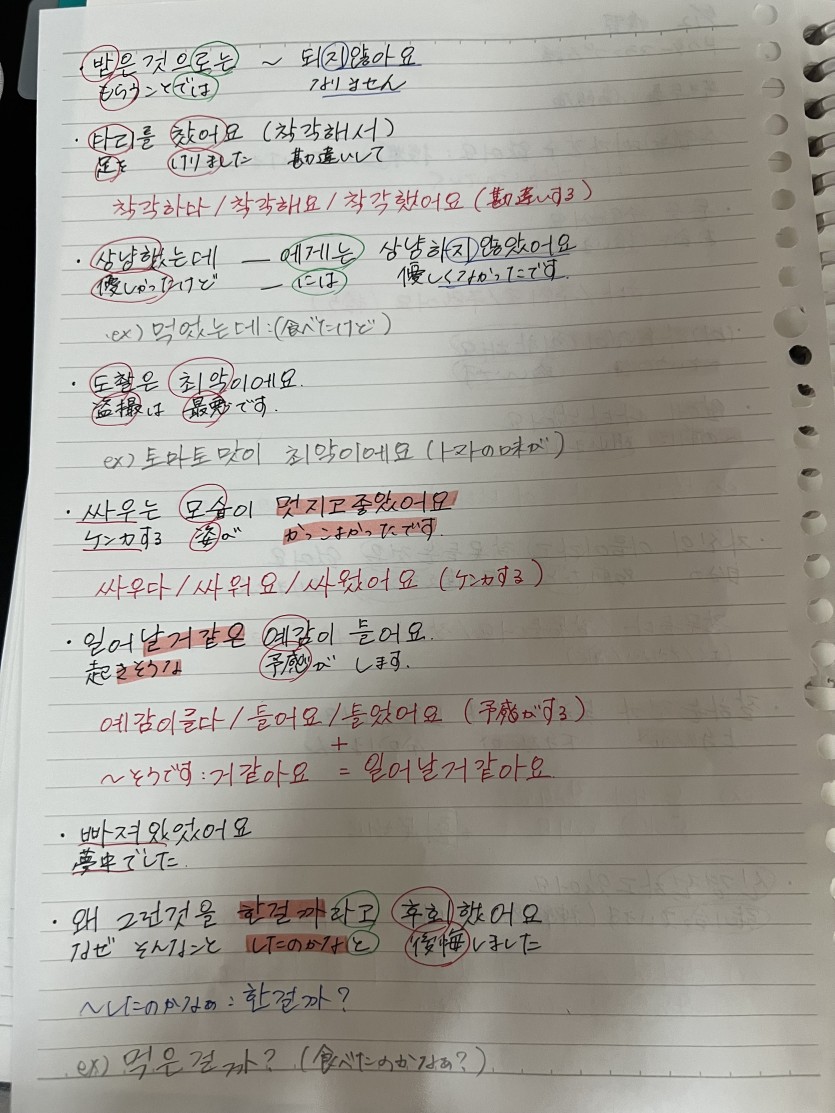 ・받은것으로는 ~ 되지않아요
もらうことでは なりません
・다리를 찼어요 (착각해서)
足を けりました 勘違いして
착각하다/착각해요/착각했어요(勘違いする)
・상냥했는데 — 에게는 상냥하지않았어요
優しかったけど — には 優しくなかったです.
ex) 먹었는데:(食べたけど)
・도촬은 최악이에요.
盗撮は 最悪です.
ex) 토마토맛이 최악이에요(トマトの味が)
・싸우는 모습이 멋지고좋았어요
ケンカする 姿が かっこよかったです.
싸우다/싸워요/싸웠어요(ケンカする)
・일어날거같은 예감이 들어요.
起きそうな 予感が します.
예감이를다/들어요/들었어요(予感がする)
+
~そうです:거같아요 = 일어날거같아요
・빠져있었어요
夢中でした.
・왜 그런것을 한걸까라고 후회했어요
なぜ そんなこと したのかなと 後悔しました
~したのかなぁ:한걸까?
ex) 먹은걸까? (食べたのかなぁ?)